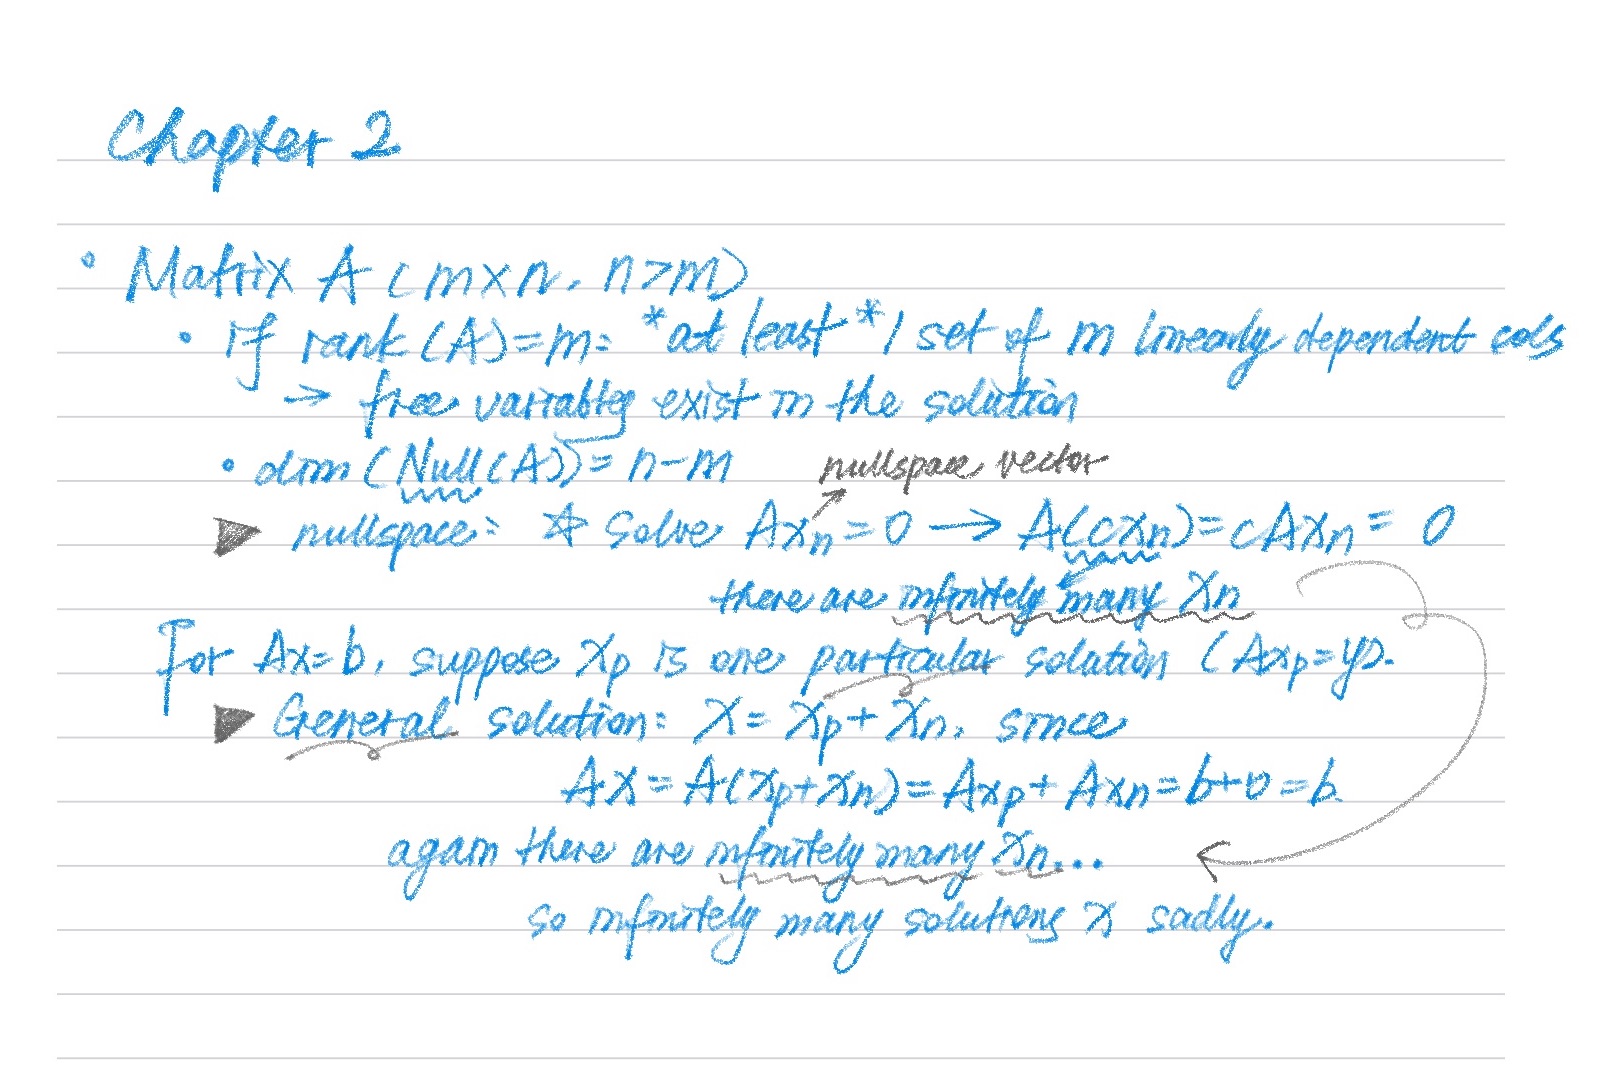 Chapter 2
Matrix A (m×n, n>m)
if rank (A)=m: *at least* 1 set of m linearly dependent cols
→ free variables exist in the solution
dim (Null(A))= n-m
nullspace vector
nullspace: ☆ solve Axn=0 → A(cxn)=cAxn=0
there are infinitely many xn
For Ax=b, suppose xp is one particular solution (Axp=y).
General solution: x=xp+xn, since
Ax=A(xp+xn)=Axp+Axn=b+0=b.
again there are infinitely many xn...
so infinitely many solutions x sadly.